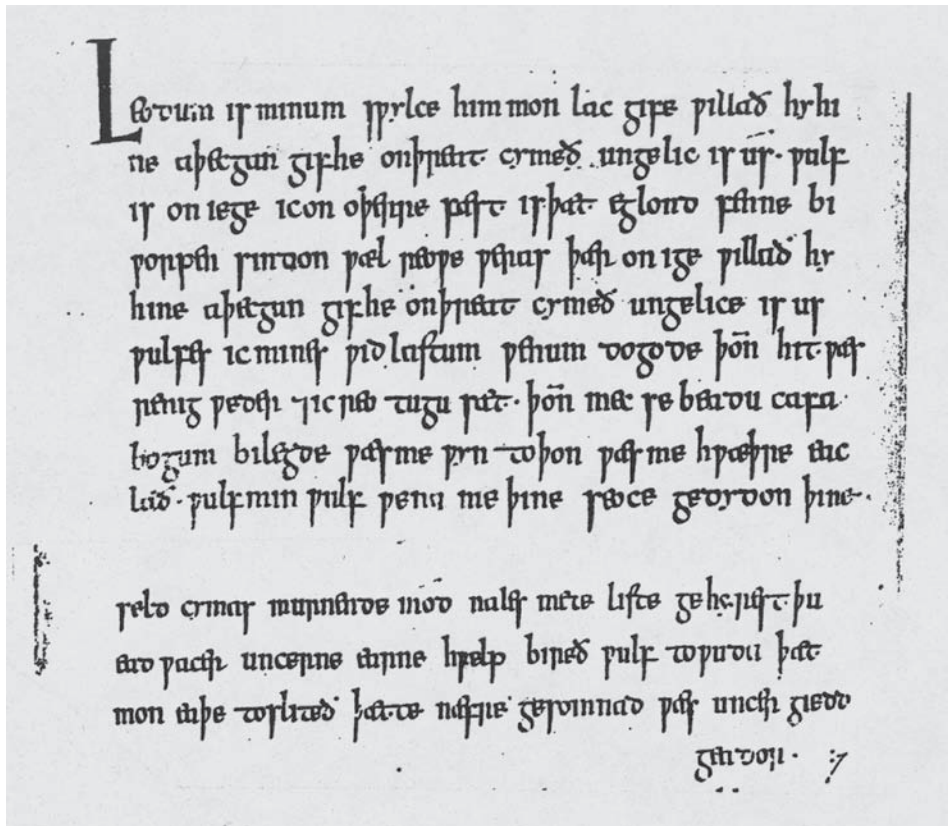 Leodum is minum sƿylce him mon lac gife ƿillað hy hi
ne aþecgan gif he onþreat cymeð ungelic is us · ƿulf
is on iege ic on oþerre fæst is þæt eglond fenne bi
ƿorpen sindon ƿæl reoƿe ƿeras þær on ige ƿillað hy
hine aþecgan gif he on þreat cymeð ungelice is us
ƿulfes ic mines ƿid lastum ƿenum dogode þoñ hit ƿæs
renig ƿeder ⁊ ic reo tugu sæt · þoñ mec se beadu cafa
bogum bilegde ƿæs me ƿyn to þon ƿæs me hƿæþre eac
lað · ƿulf min ƿulf ƿena me þine seoce gedydon þine
seld cymas murnende mod nales mete liste gehyrest þu
ead ƿacer uncerne earne hƿelp bireð ƿulf to ƿuda þæt
mon eaþe tosliteð þætte næfre gesomnad ƿæs uncer giedd
geador · :7